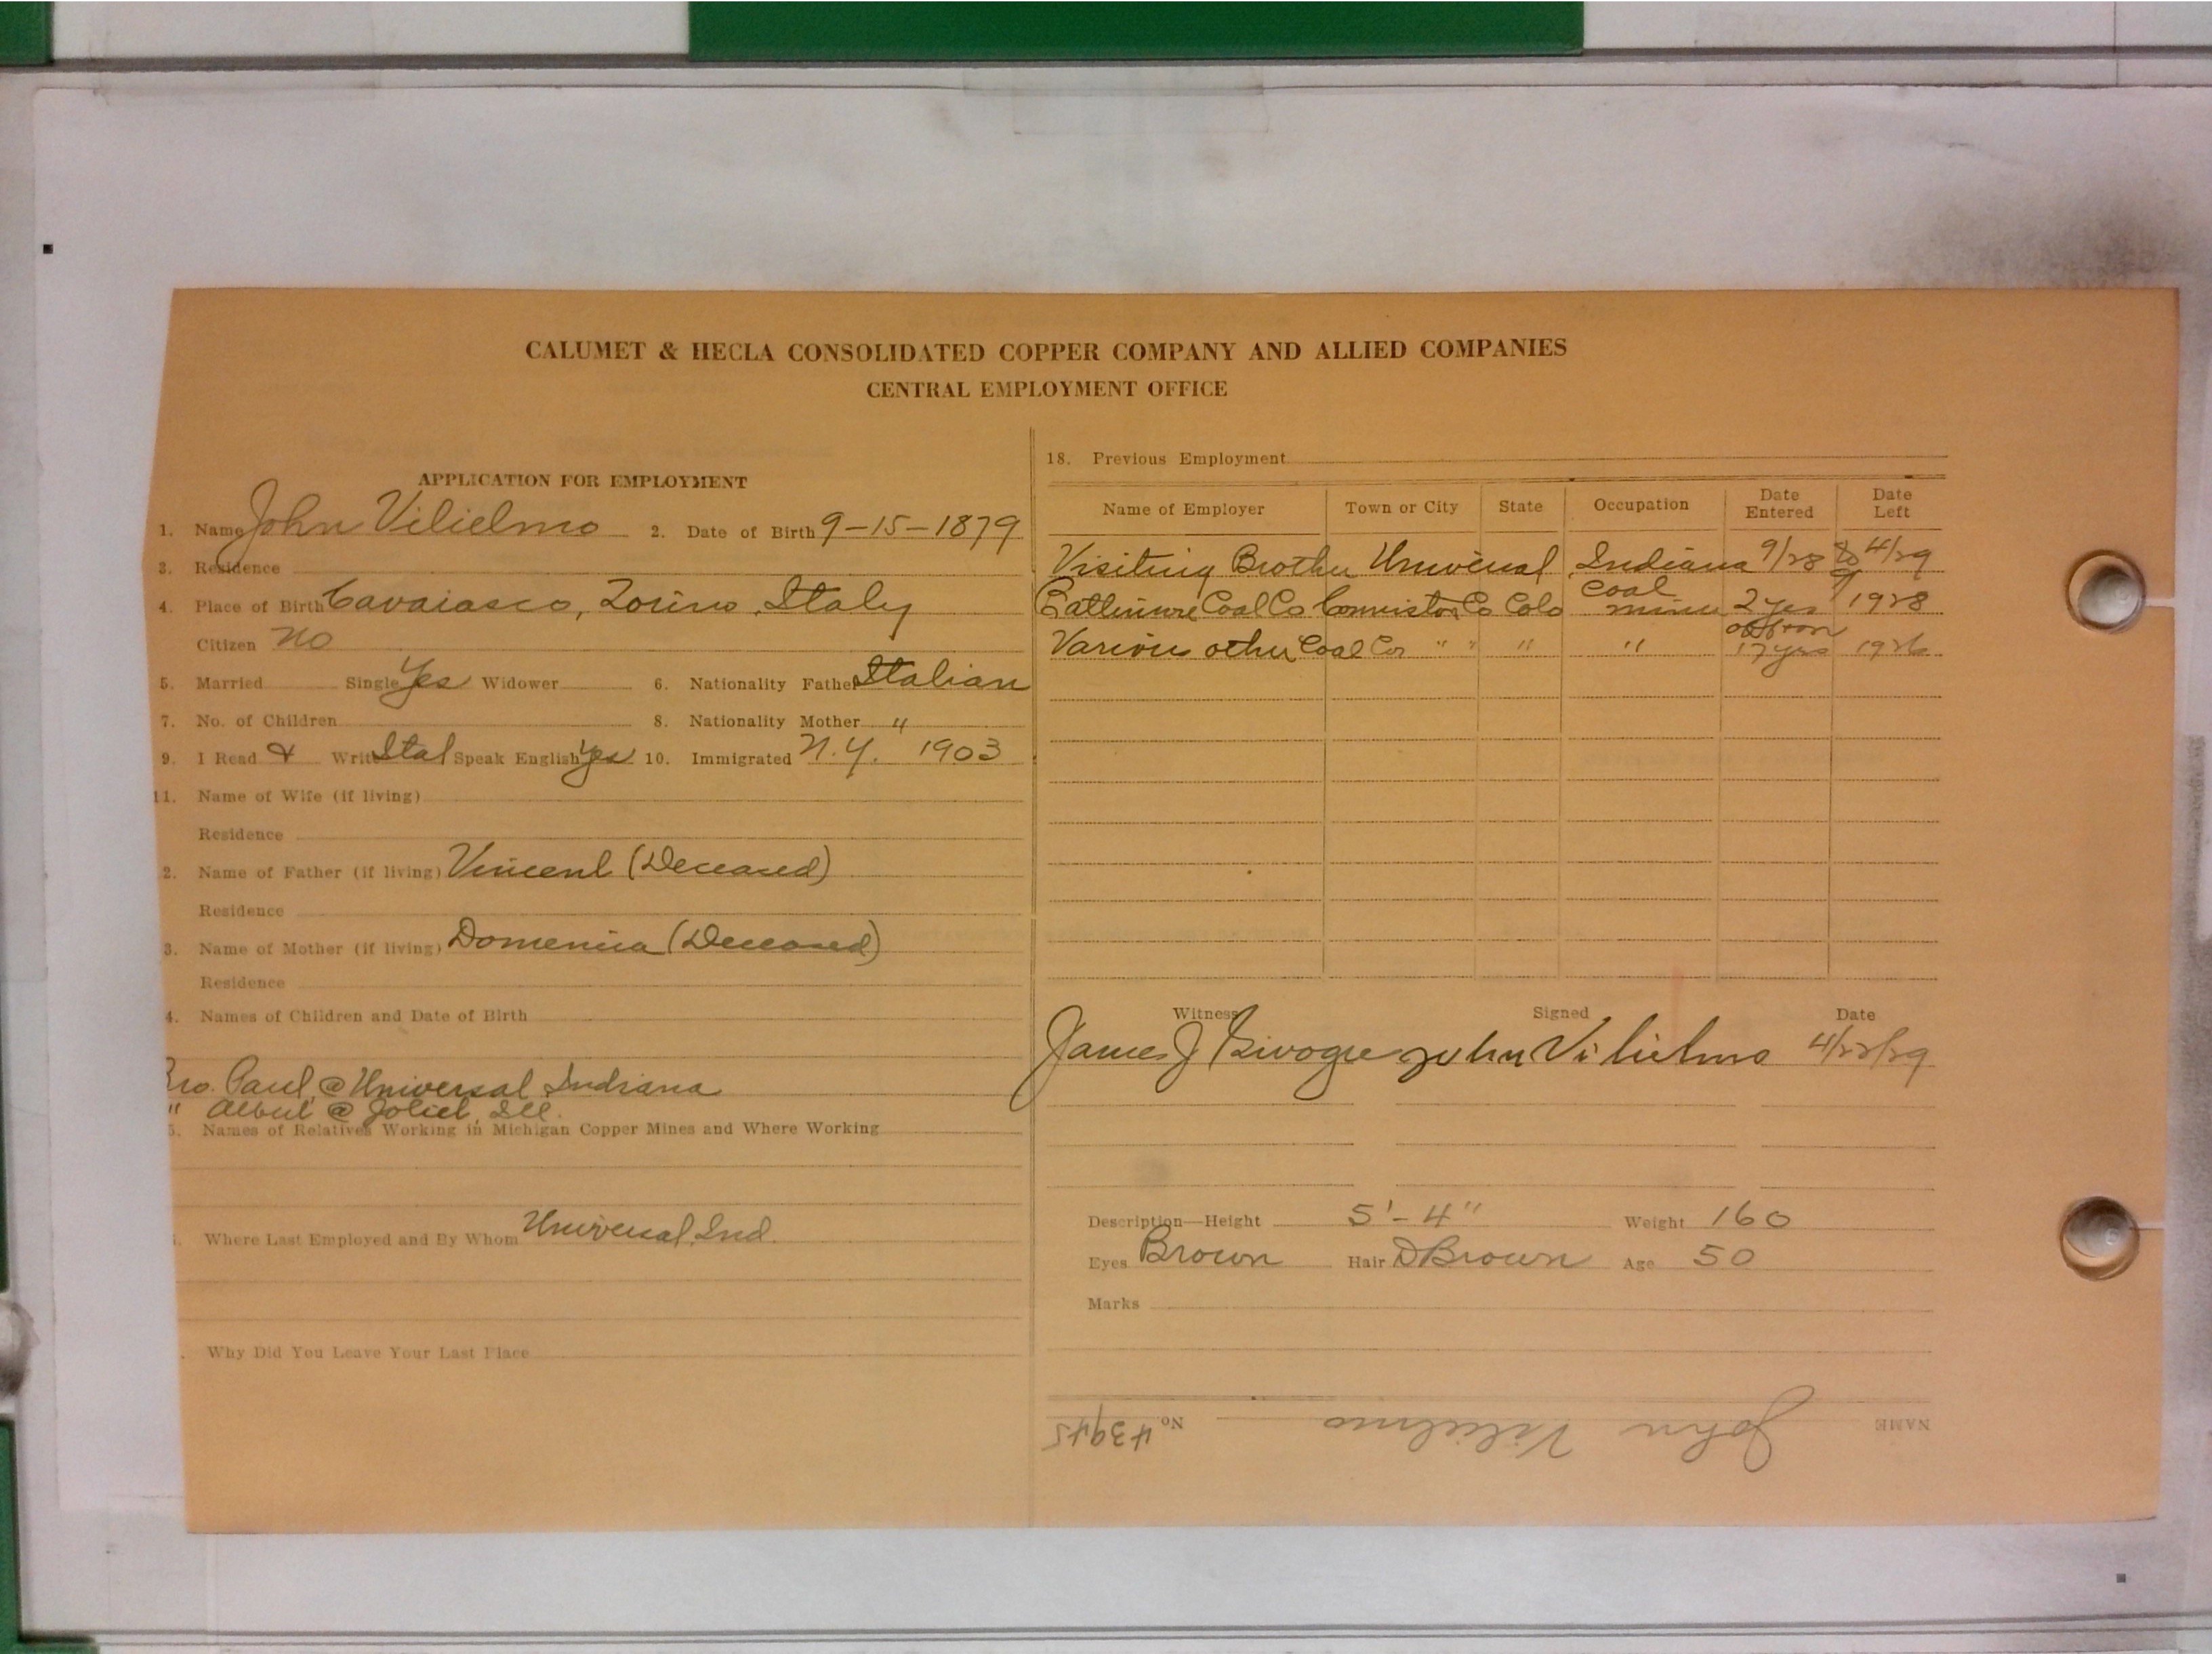 CALUMET & HECLA CONSOLIDATED COPPER COMPANY AND ALLIED COMPANIES
CENTRAL EMPLOYMENT OFFICE
APPLICATION FOR EMPLOYMENT
1. Name John Vilielmo 2. Date of Birth 9-15-1879
3. Residence
4. Place of Birth Cavaiasco, Torino, Italy
Citizen no
5. Married Single Yes Widower 6. Nationality Father Italian
7. No. of Children 8. Nationality Mother "
9. I Read & Write Ital Speak English Yes 10. Immigrated N.Y. 1903
11. Name of Wife (if living)
Residence
2. Name of Father (if living) Vincent (Deceased)
Residence
3. Name of Mother (if living) Domenica (Deceased)
Residence
4. Names of Children and Date of Birth
Bro. Paul @ Universal, Indiana
" Albert @ Joliet, Ill.
5. Names of Relatives Working in Michigan Copper Mines and Where Working
Where Last Employed and By Whom Universal, Ind.
Why Did You Leave Your Last Place
18. Previous Employment
Name of Employer Town or City State Occupation Date Entered Date Left
Visiting Brother Universal, Indiana 9/28 to 4/29
Coal Co Co Colo coal miner 2 yrs 9 1928
Various other Coal Cos " " " " 17 yrs 1926
Witness Signed Date
James J John Vilielmo 4/22/29
Description—Height 5'-4" Weight 160
Eyes Brown Hair D Brown Age 50
Marks
NAME John Vilielmo No. 43945